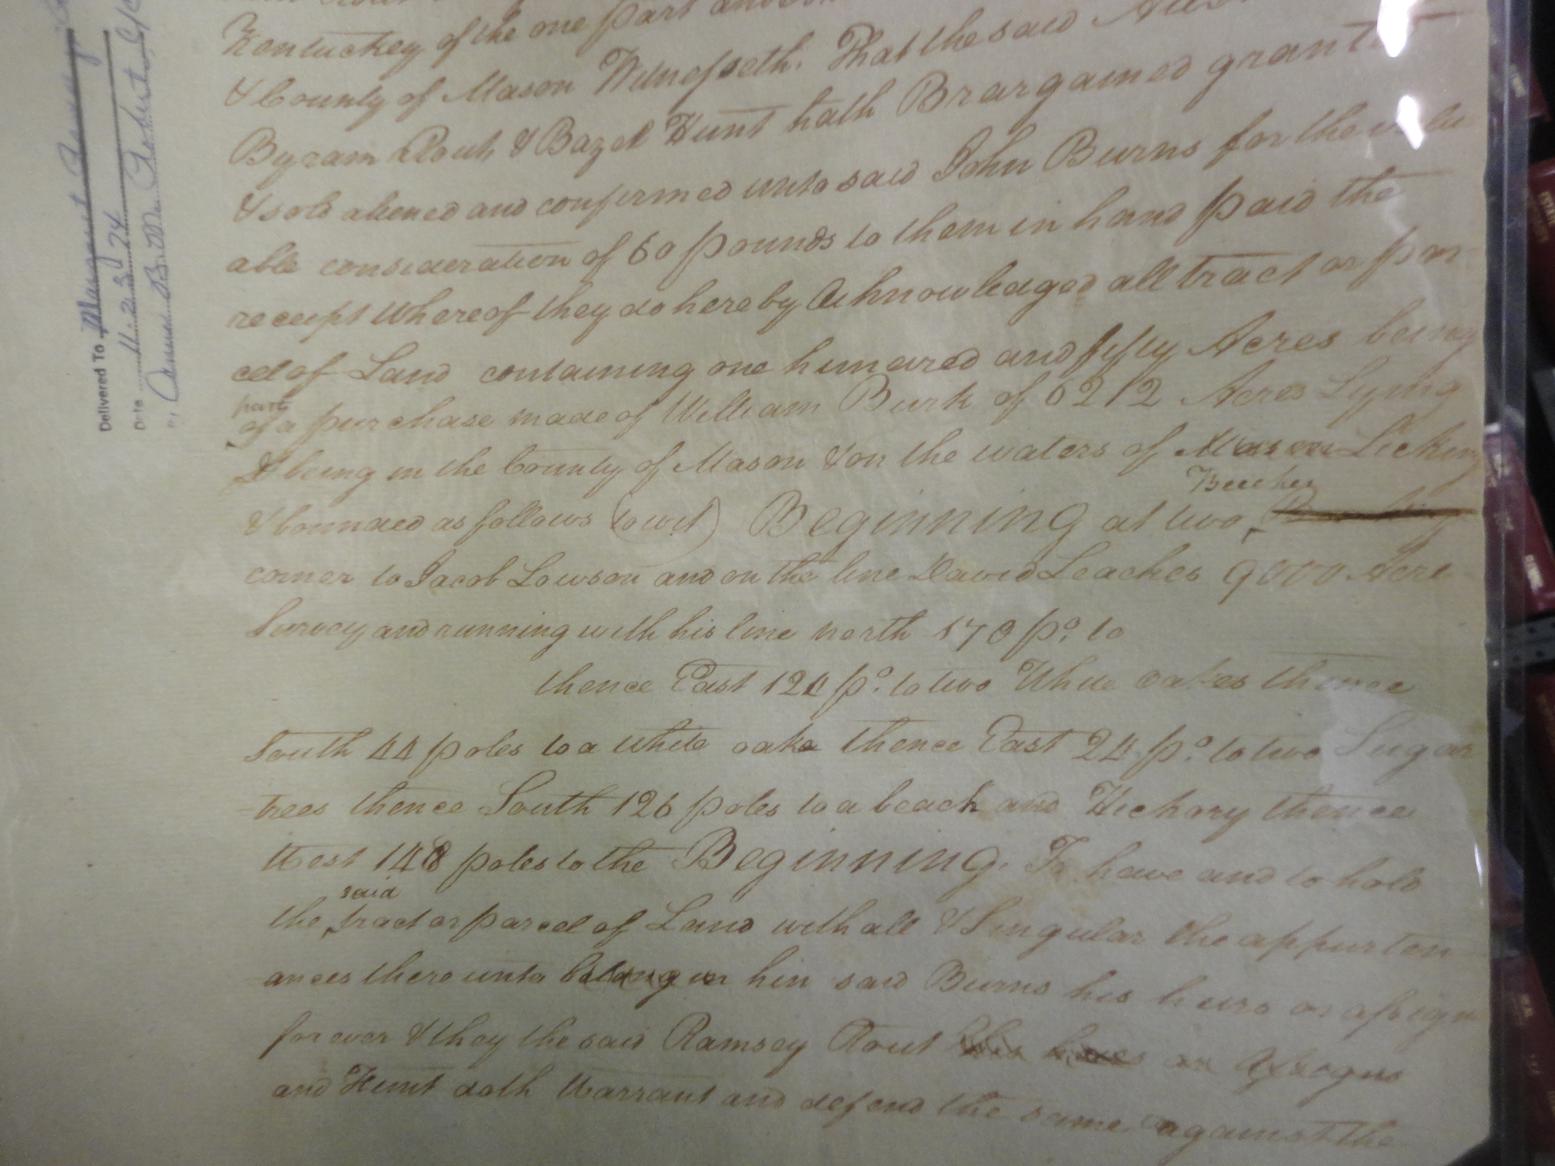 Kentuckey of the one part and
& County of Mason Witnesseth. That the said
Byram Rout & Bazel Hunt hath Brargained grant
& sold aliened and confirmed unto said John Burns for the valu
able consideration of 60 pounds to them in hand paid the
receipt Whereof they do hereby Acknowledged all tract or par
cel of Land containing one hundred and fifty Acres being
part
of a purchase made of William Burk of 6212 Acres Lying
& being in the County of Mason & on the waters of Mason Licking
Beeches
& bounded as follows (towit) Beginning at two
corner to Jacob Lowson and on the line David Leaches 9000 Acre
Survey and running with his line north 170 po. to
thence East 124 po. to two White oakes thence
South 44 poles to a white oake thence East 24 po. to two Sugar
trees thence South 126 poles to a beach and Hickory thence
West 148 poles to the Beginning. To have and to hold
said
the tract or parcel of Land with all & Singular the appurten
ances there unto belonging him said Burns his heirs or assign
forever & they the said Ramsey Rout his heires or Assegns
and Hunt doth Warrant and defend the same against the
Delivered To Margaret
Date 11-23-74